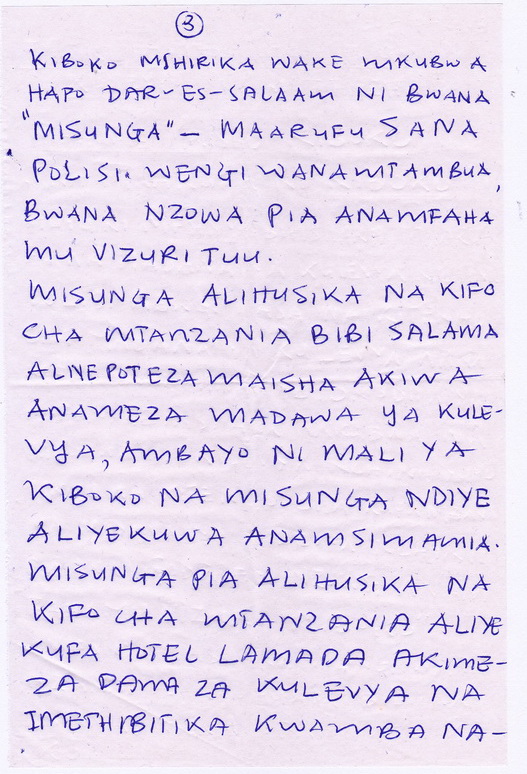 3
KIBOKO MSHIRIKA WAKE MKUBWA
HAPO DAR-ES-SALAAM NI BWANA
"MISUNGA" - MAARUFU SANA
POLISI. WENGI WANAMTAMBUA,
BWANA NZOWA PIA ANAMFAHA
MU VIZURI TUU.
MISUNGA ALIHUSIKA NA KIFO
CHA MTANZANIA BIBI SALAMA
ALIYEPOTEZA MAISHA AKIWA
ANAMEZA MADAWA YA KULE-
VYA, AMBAYO NI MALI YA
KIBOKO NA MISUNGA NDIYE
ALIYEKUWA ANAMSIMAMIA.
MISUNGA PIA ALIHUSIKA NA
KIFO CHA MTANZANIA ALIYE
KUFA HOTEL LAMADA AKIME-
ZA DAWA ZA KULEVYA NA
IMETHIBITIKA KWAMBA NA-